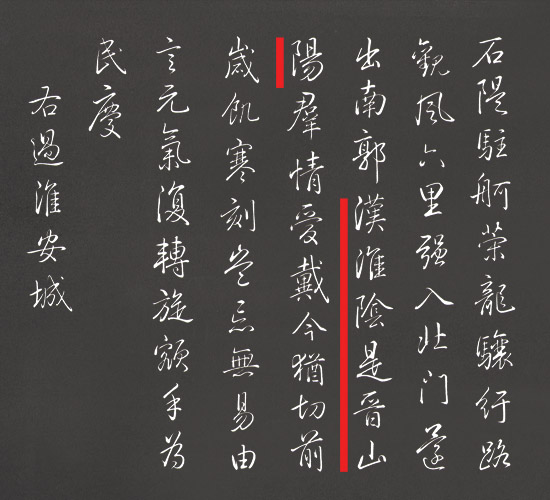 石隄駐舸榮龍驤紆路
觀風六里强入北门遂
出南郭漢淮陰是晉山
陽羣情受戴今猶切前
歲飢寒刻豈忘無易由
言元氣復轉旋額手為
民慶
右過淮安城